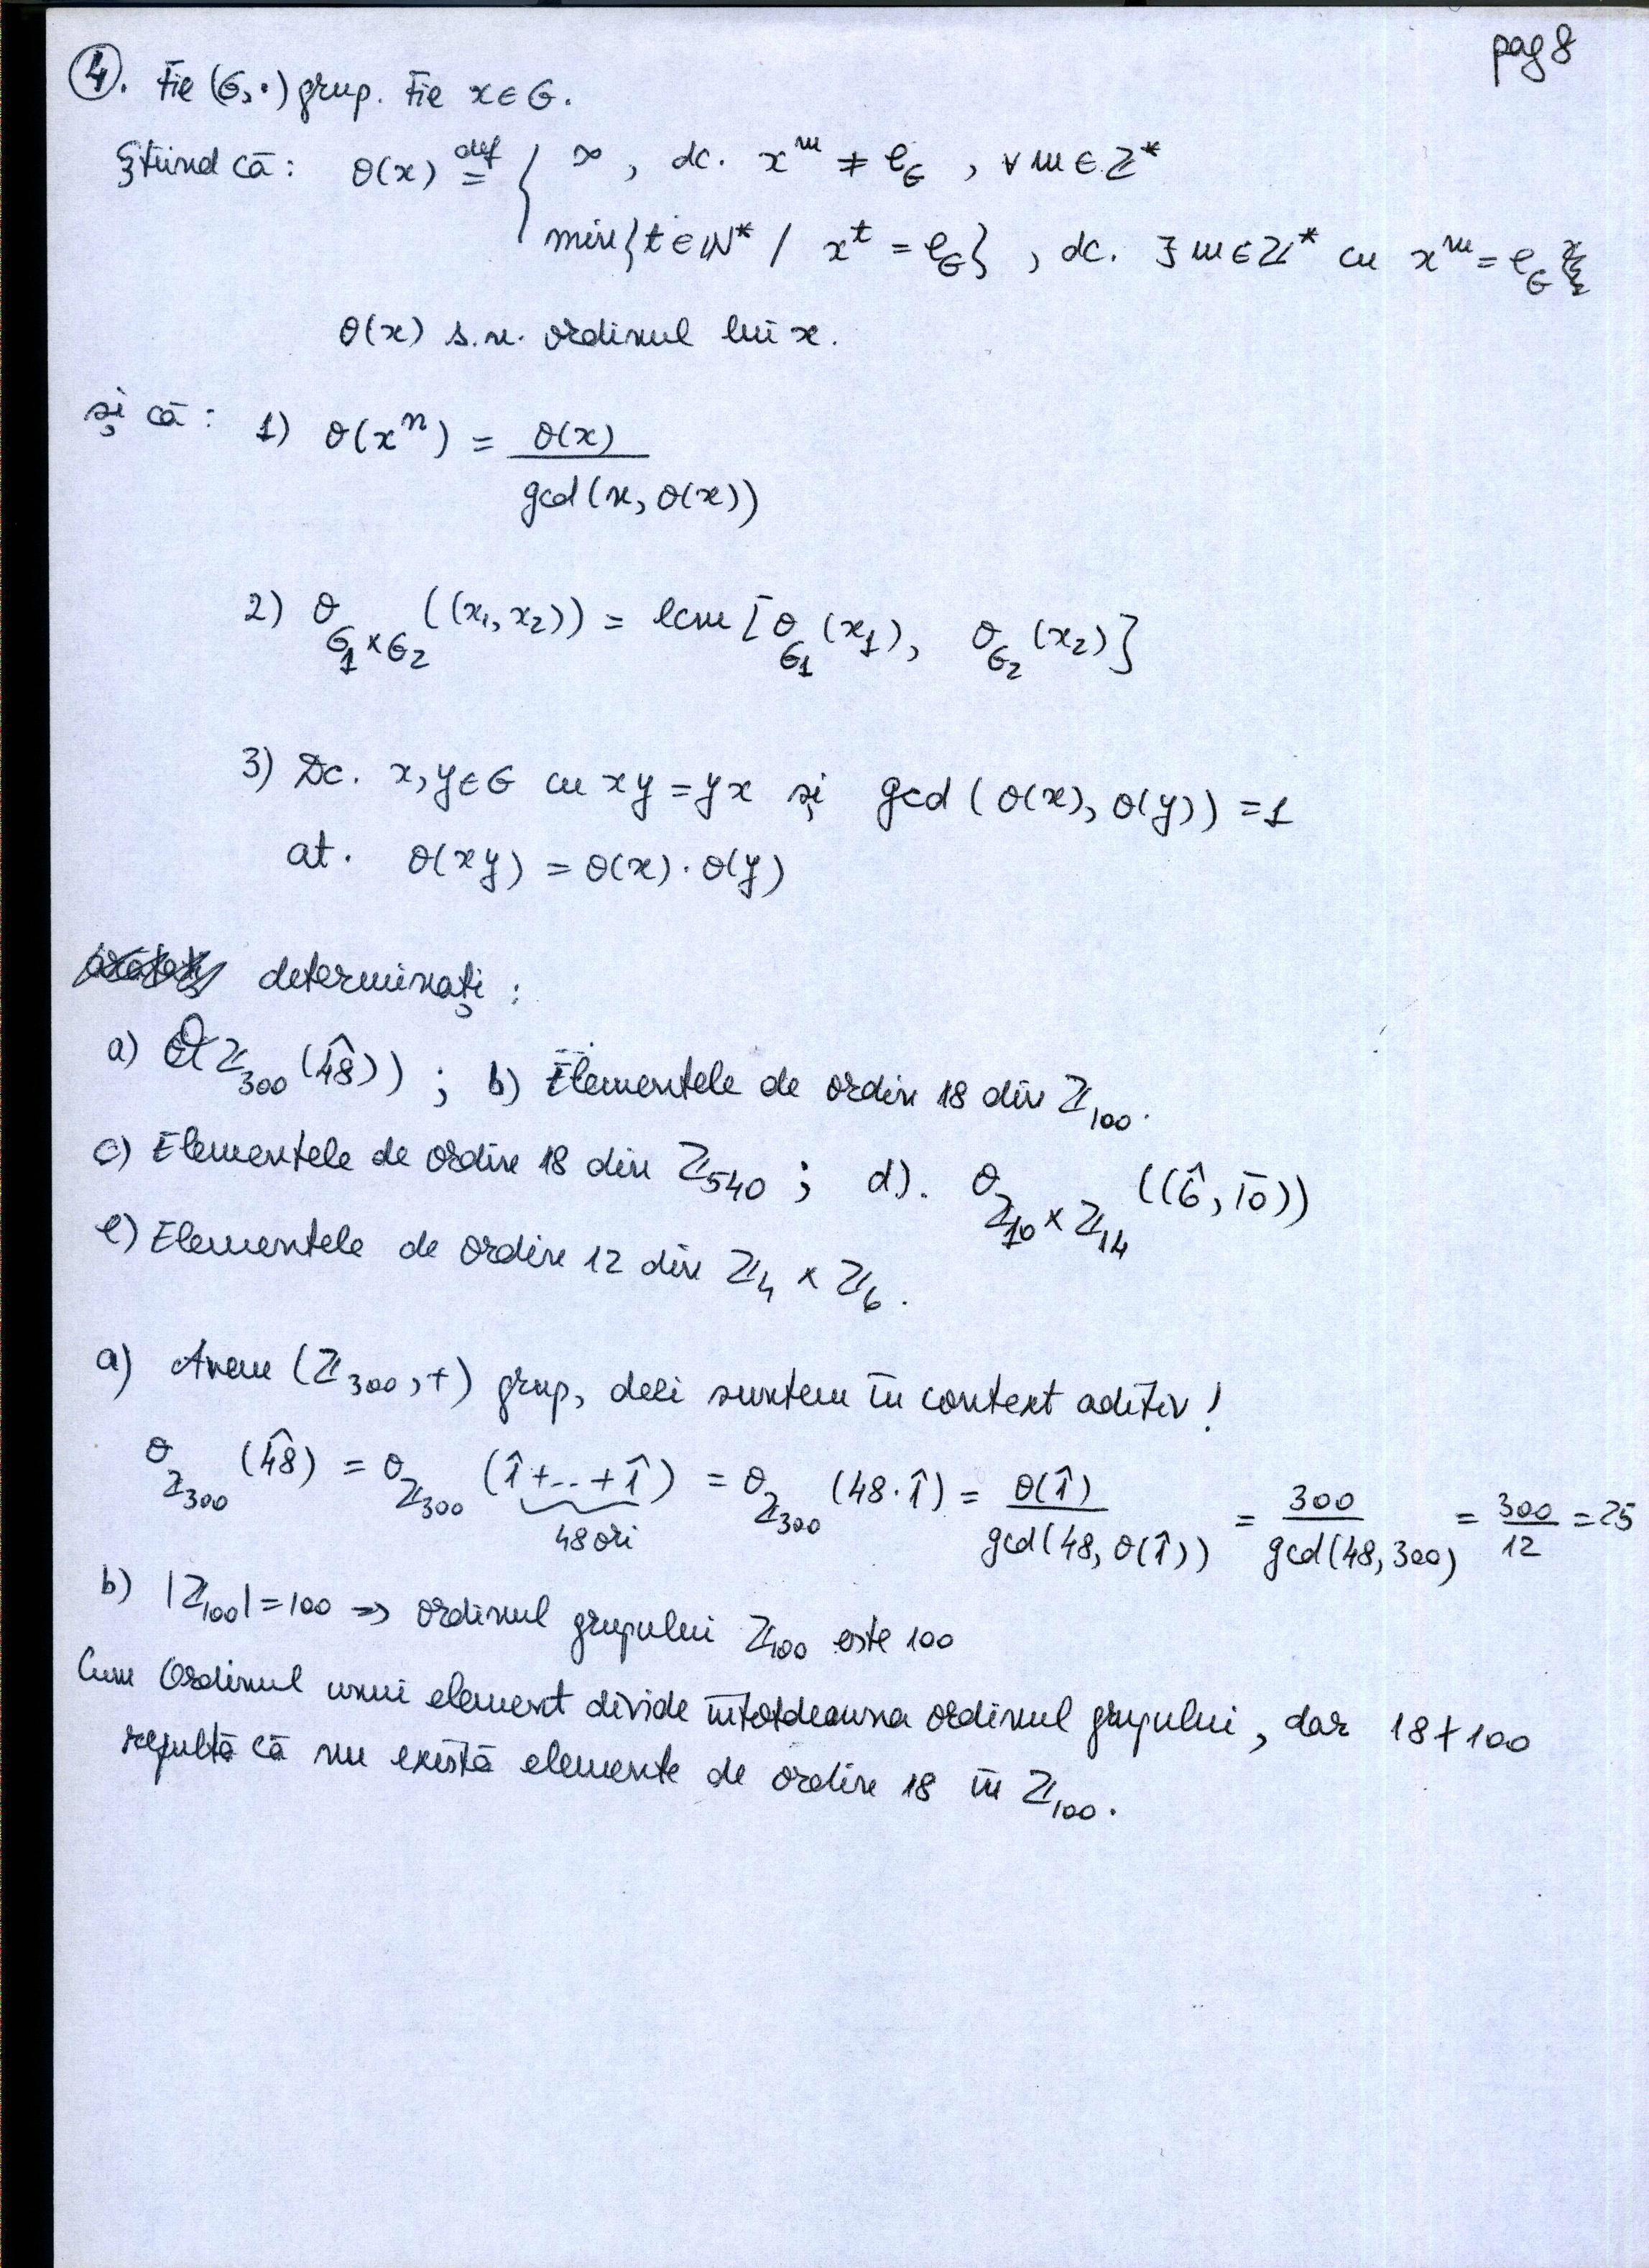 pag 8
④. Fie (G,·) grup. Fie x∈G.
Știind că: θ(x) def= { ∞, dc. x^m ≠ e_G, ∀m∈Z*
min{t∈N* / x^t = e_G}, dc. ∃m∈Z* cu x^m = e_G
θ(x) s.n. ordinul lui x.
și că: 1) θ(x^n) = θ(x) / gcd(n, θ(x))
2) θ_{G1×G2} ((x1, x2)) = lcm[θ_{G1}(x1), θ_{G2}(x2)}
3) Dc. x,y∈G cu xy=yx și gcd(θ(x), θ(y)) = 1
at. θ(xy) = θ(x)·θ(y)
determinați:
a) θ_{Z300}(4̂8̂)); b) Elementele de ordin 18 din Z100.
c) Elementele de ordin 18 din Z540; d). θ_{Z10×Z14} ((6̂, 1̄0̄))
e) Elementele de ordin 12 din Z4 × Z6.
a) Avem (Z300,+) grup, deci suntem în context aditiv!
θ_{Z300}(4̂8̂) = θ_{Z300}(1̂+...+1̂) = θ_{Z300}(48·1̂) = θ(1̂) / gcd(48, θ(1̂)) = 300 / gcd(48, 300) = 300/12 = 25
48 ori
b) |Z100| = 100 => ordinul grupului Z100 este 100
Cum Ordinul unui element divide întotdeauna ordinul grupului, dar 18∤100
rezultă că nu există elemente de ordin 18 în Z100.